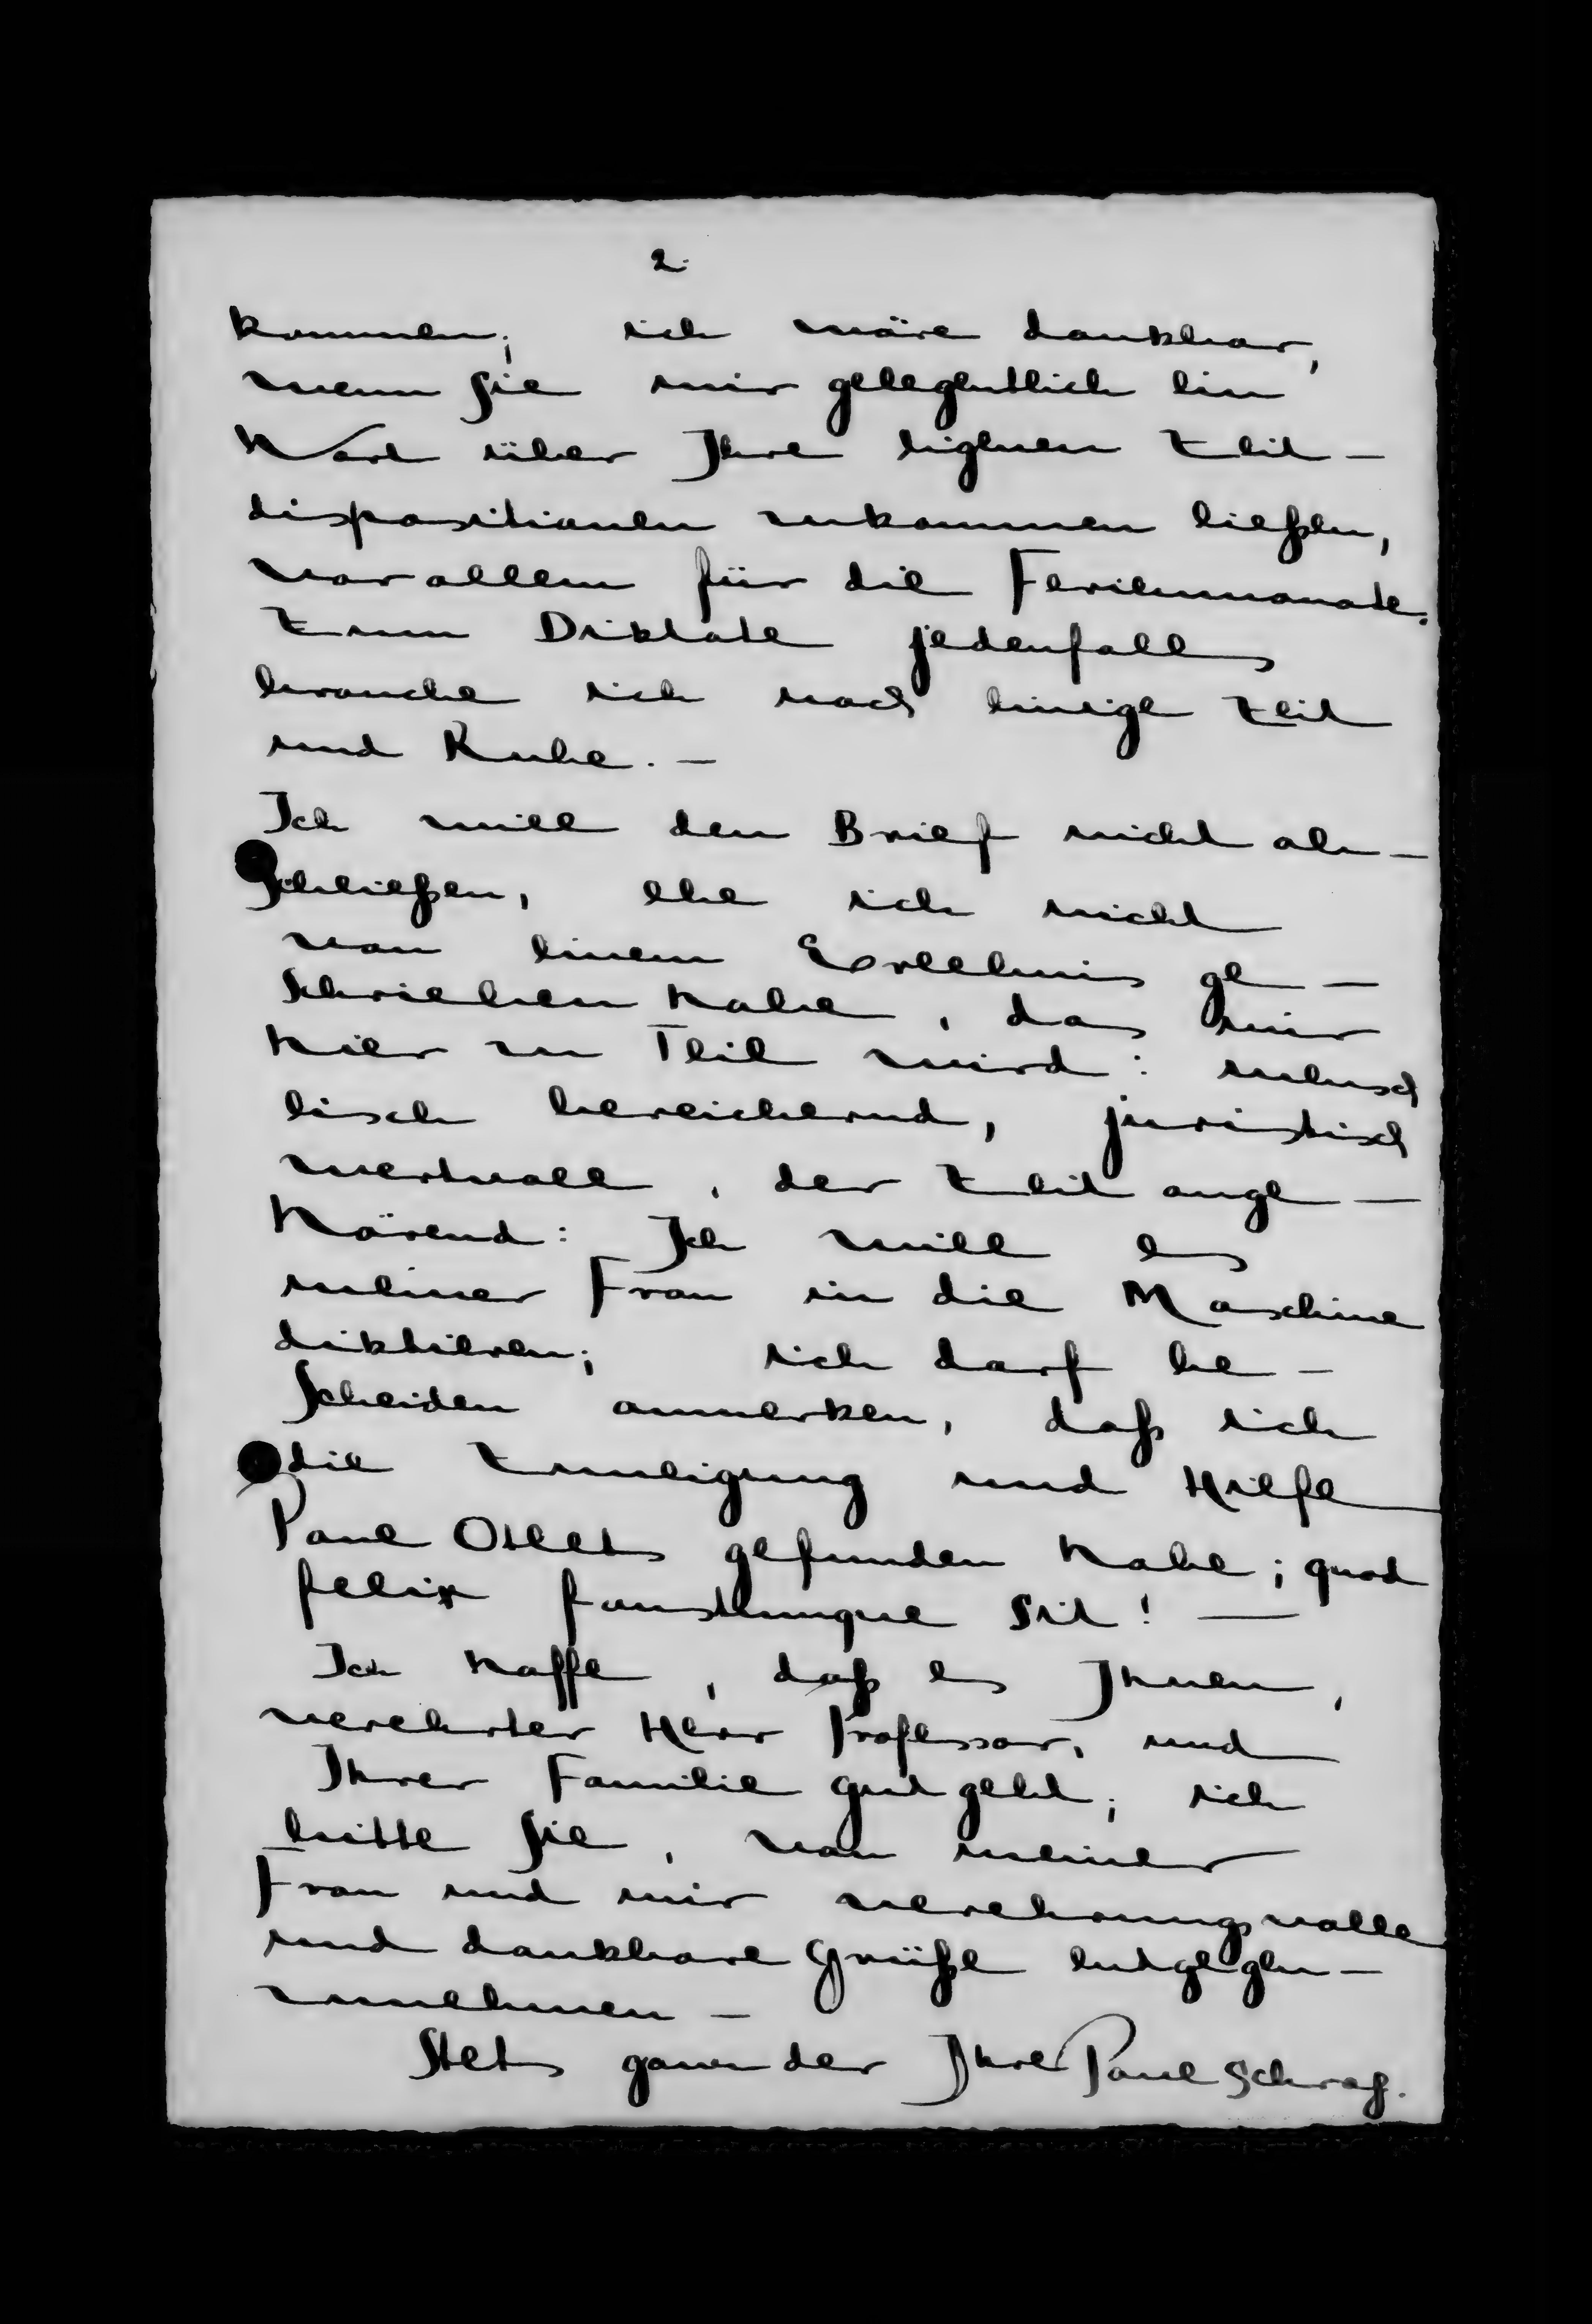 2.
kommen; ich wäre dankbar,
wenn Sie mir gelegentlich ein
Wort über Ihre eigenen Zeit-
dispositionen zukommen ließen,
vor allem für die Ferienmonate.
Zum Diktate jedenfalls
brauche ich noch einige Zeit
und Ruhe. -
Ich will den Brief nicht ab-
schließen, ehe ich nicht
von einem Erlebnis ge-
schrieben habe, das mir
hier zu Teil wird: mensch
lisch bereichernd, juristisch
wertvoll, der Zeit ange-
hörend: Ich will es
meiner Frau in die Maschine
diktieren; ich darf be-
scheiden anmerken, daß ich
die Zuneigung und Hilfe
Paul Otlets gefunden habe; quod
felix faustumque sit! —
Ich hoffe, daß es Ihnen,
verehrter Herr Professor, und
Ihrer Familie gut geht; ich
bitte Sie, von meiner
Frau und mir verehrungsvolle
und dankbare Grüße entgegen-
zunehmen -
Stets ganz der Ihre Paul Schrag.